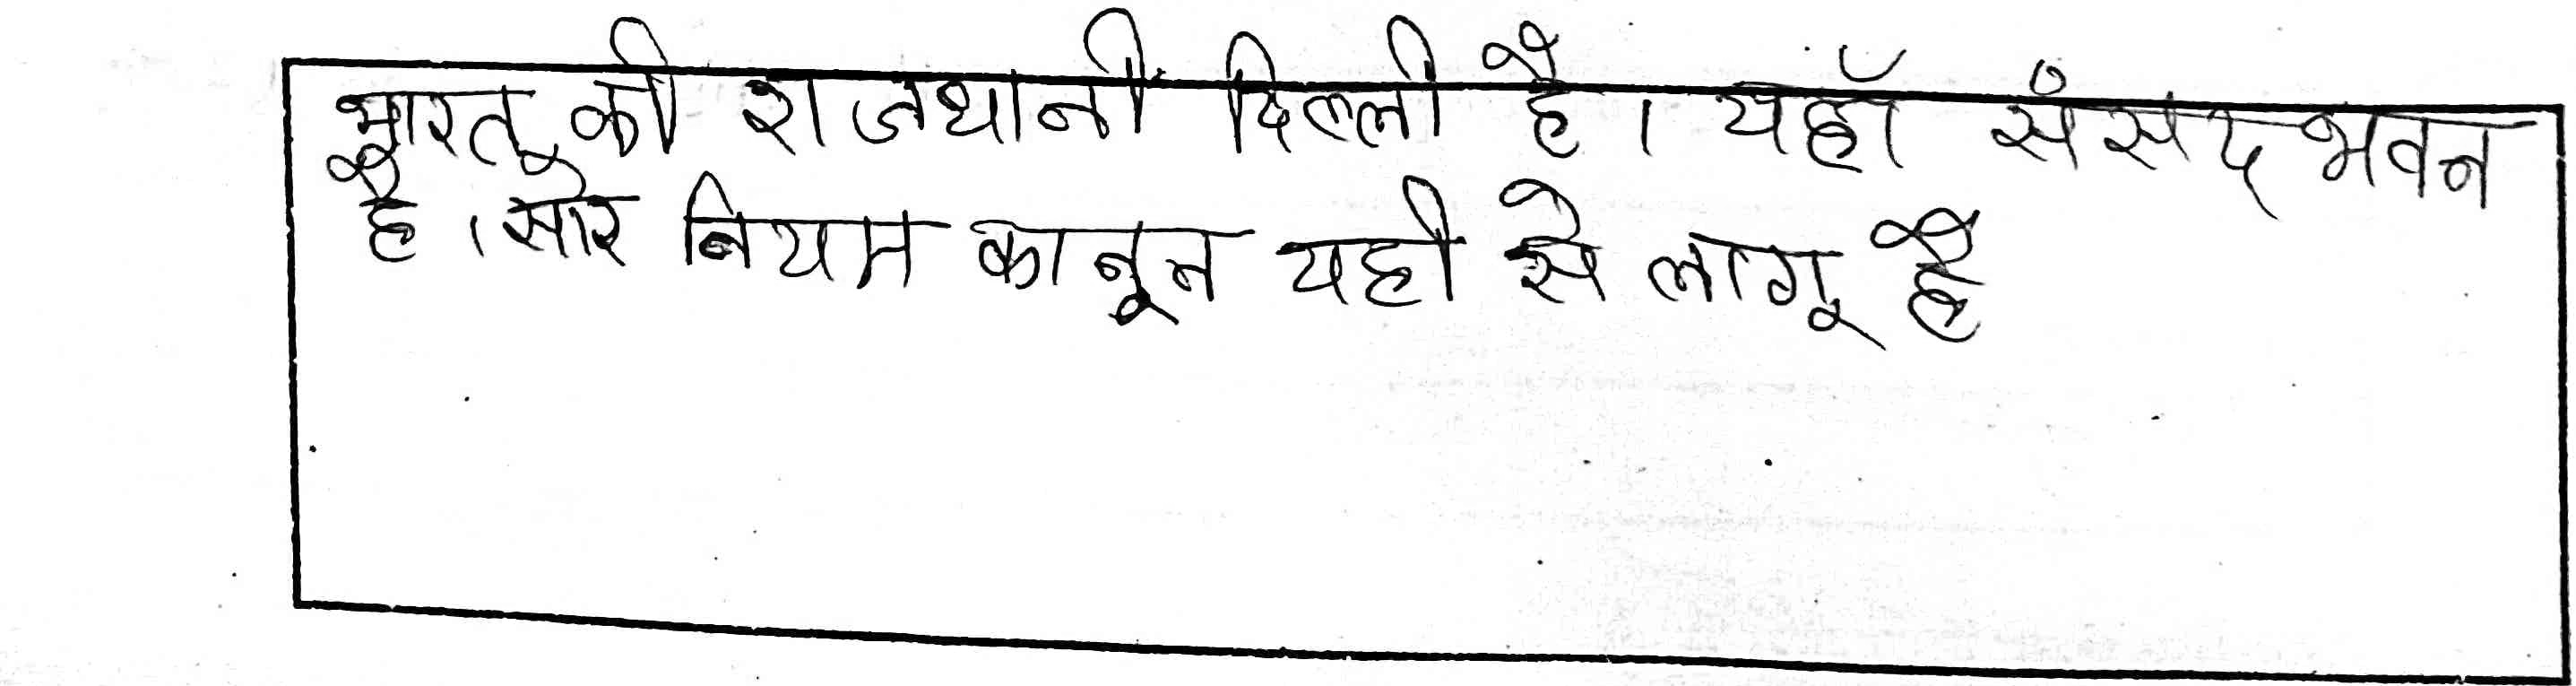 भारत की राजधानी दिल्ली है। यहाँ संसद भवन
है। सारे नियम कानून यही से लागू है